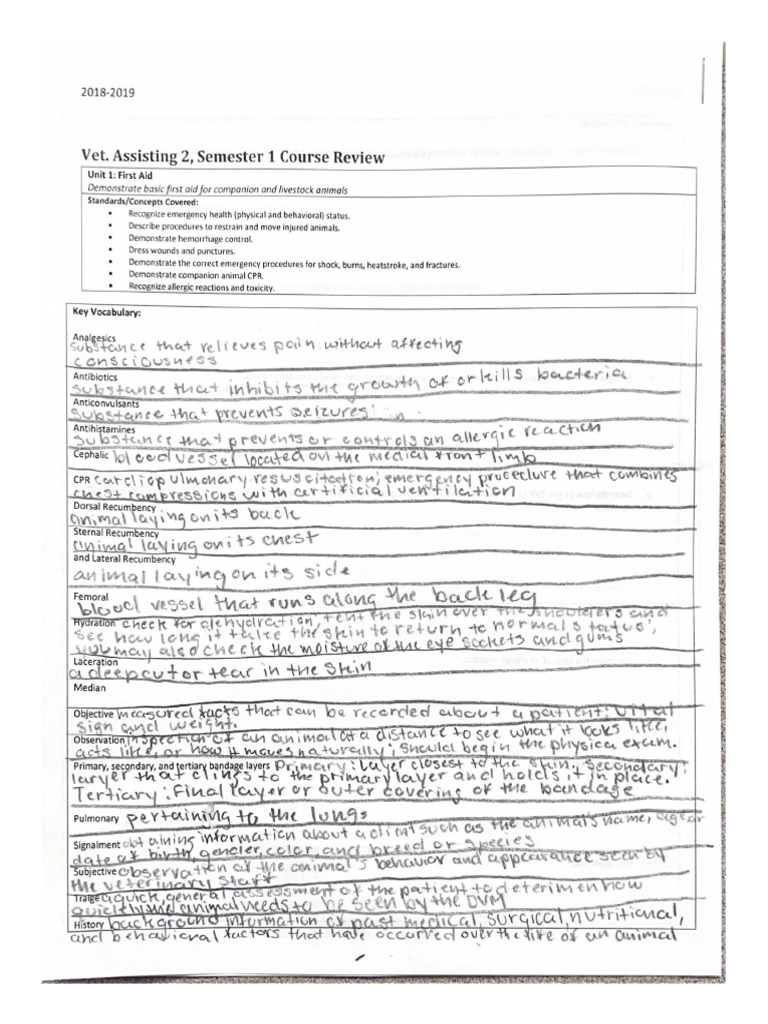 2018-2019
Vet. Assisting 2, Semester 1 Course Review
Unit 1: First Aid
Demonstrate basic first aid for companion and livestock animals
Standards/Concepts Covered:
• Recognize emergency health (physical and behavioral) status.
• Describe procedures to restrain and move injured animals.
• Demonstrate hemorrhage control.
• Dress wounds and punctures.
• Demonstrate the correct emergency procedures for shock, burns, heatstroke, and fractures.
• Demonstrate companion animal CPR.
• Recognize allergic reactions and toxicity.
Key Vocabulary:
Analgesics
substance that relieves pain without affecting
consciousness
Antibiotics
substance that inhibits the growth of or kills bacteria
Anticonvulsants
substance that prevents seizures
Antihistamines
substance that prevents or controls an allergic reaction
Cephalic blood vessel located on the medial front limb
CPR cardiopulmonary resuscitation; emergency procedure that combines
chest compressions with artificial ventilation
Dorsal Recumbency
animal laying on its back
Sternal Recumbency
animal laying on its chest
and Lateral Recumbency
animal laying on its side
Femoral
blood vessel that runs along the back leg
Hydration check for dehydration, tent the skin over the shoulders and
see how long it take the skin to return to normal status,
you may also check the moisture of the eye sockets and gums
Laceration
a deep cut or tear in the skin
Median
Objective measured facts that can be recorded about a patient: vital
sign and weight.
Observation inspection of an animal at a distance to see what it looks like,
acts like, or how it moves naturally; should begin the physical exam.
Primary, secondary, and tertiary bandage layers Primary: Layer closest to the skin, Secondary:
laryer that clings to the primary layer and holds it in place.
Tertiary: Final layer or outer covering of the bandage
Pulmonary pertaining to the lungs
Signalment obtaining information about a client such as the animal's name, age or
date of birth, gender, color, and breed or species
Subjective observation of the animal's behavior and appearance seen by
the veterinary staff
Traige a quick, general assessment of the patient to deterimen how
quickly and animal needs to be seen by the DVM
History background information of past medical, surgical, nutritional,
and behavioral factors that have occurred over the life of an animal